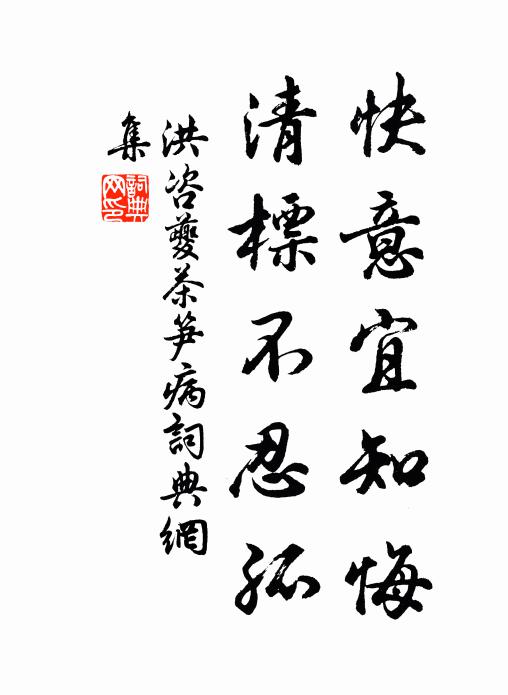 快意宜知悔
清標不忍孤
洪咨夔茶笋病詞典網
集
詞典
网印